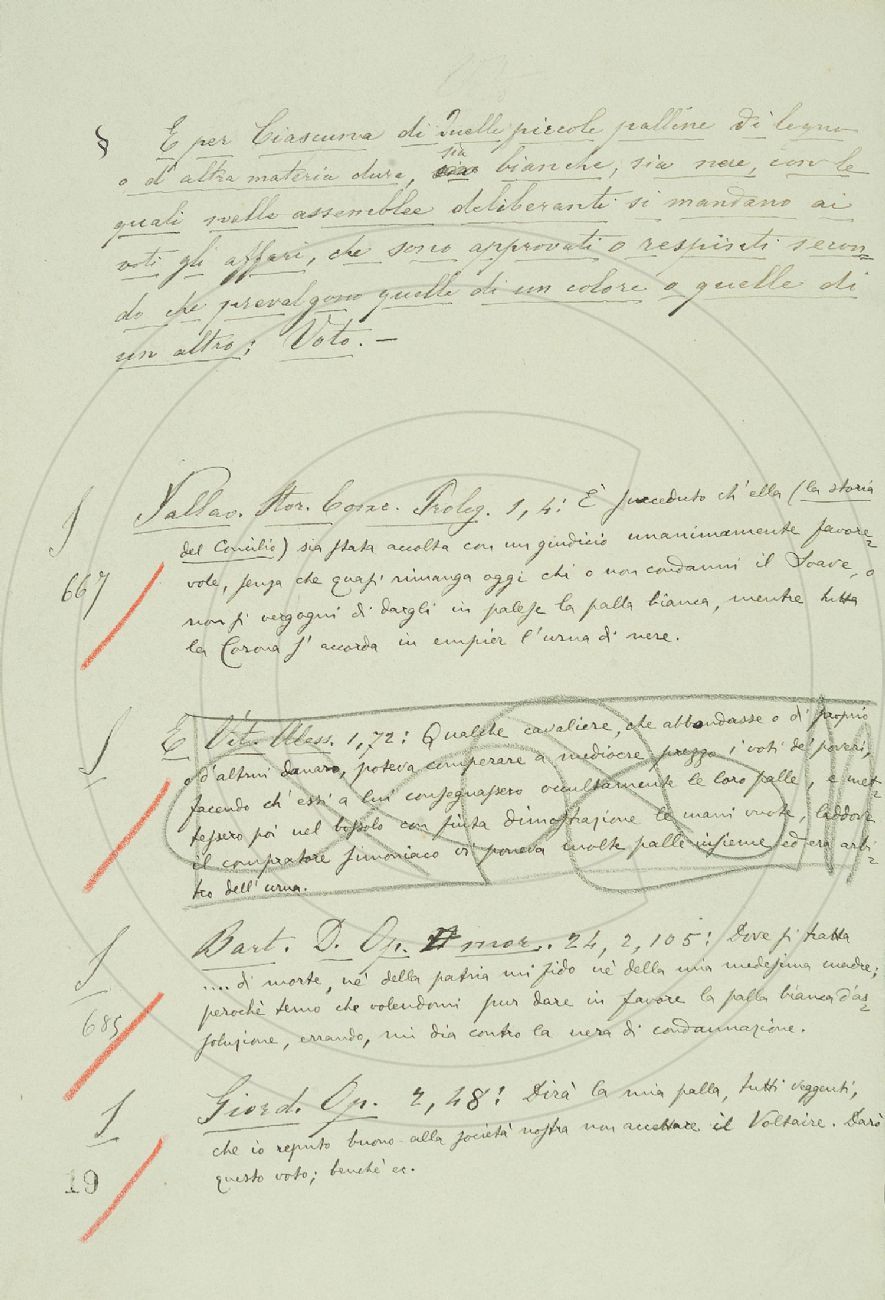 § E per Ciascuna di quelle piccole palline di legno
o d'altra materia dura, sia bianche, sia nere, con le
quali nelle assemblee deliberanti si mandano ai
voti gli affari, che sono approvati o respinti secon=
do che prevalgono quelle di un colore o quelle di
un altro; Voto. —
S Pallav. Stor. Conc. Prolog. 1, 4: È succeduto ch'ella (la storia
del Concilio) sia stata accolta con un giudicio unanimamente favore=
667 vole, senza che quasi rimanga oggi chi o non condanni il Soave, o
non si vergogni di dargli in palese la palla bianca, mentre tutta
la Corona s'accorda in empier l'urna di nere.
S E Vit. Aless. 1,72: Qualche cavaliere, che abbondasse o di proprio
o d'altrui danaro, poteva comperare a mediocre prezzo i voti de' poveri,
facendo ch'essi a lui consegnassero occultamente le loro palle, e met=
tessero poi nel bossolo con finta dimostrazione le mani vuote, laddove
il compratore simoniaco vi poneva molte palle insieme ed era arbi=
tro dell'urna.
S Bart. D. Op. mor. 24, 2, 105: Dove si tratta
.... di morte, nè della patria mi fido nè della mia medesima madre;
685 perochè temo che volendomi pur dare in favore la palla bianca d'as=
soluzione, errando, mi dia contro la nera di condannazione.
S Giord. Op. 2, 48: Dirà la mia palla, tutti veggenti,
che io reputo buono alla società nostra non accettare il Voltaire. Darò
19 questo voto; benchè ec.